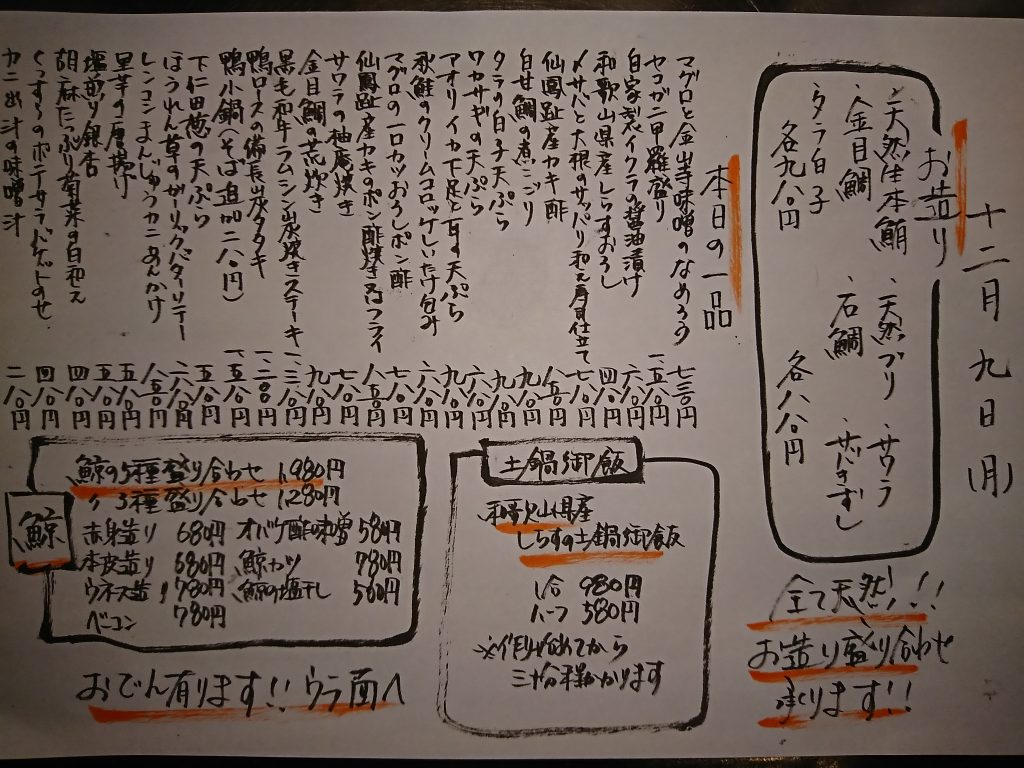 十二月九日(月)
お造り
・天然生本鮪 ・天然ブリ ・サワラ
・金目鯛 ・石鯛 ・サバきずし
・タラ白子
各九八〇円 各八八〇円
全て天然!!
お造り盛り合わせ
承ります!!
本日の一品
マグロと金山寺味噌のなめろう 七三〇円
セコガニ甲羅盛り 一、五八〇円
自家製イクラの醤油漬け 六八〇円
和歌山県産しらすおろし 四八〇円
〆サバと大根のサッパリ和え 七八〇円
仙鳳趾産カキ酢 八五〇円
白甘鯛の煮こごり 九八〇円
タラの白子天ぷら 九八〇円
ワカサギの天ぷら 六八〇円
アオリイカ下足と耳の天ぷら 九八〇円
秋鮭のクリームコロッケしいたけ包み 六八〇円
マグロの一口カツおろしポン酢 七八〇円
仙鳳趾産カキのポン酢焼き又はフライ 八五〇円
サワラの柚庵焼き 七八〇円
金目鯛の荒炊き 九八〇円
黒毛和牛ラムシン炭焼きステーキ
鴨ロースの備長炭タタキ
鴨小鍋(そば追加二八〇円)
下仁田葱の天ぷら 五八〇円
ほうれん草のガーリックバターソテー 六八〇円
レンコンまんじゅうカニあんかけ 八五〇円
里芋の唐揚げ 五八〇円
塩煎り銀杏 五八〇円
胡麻たっぷり菊菜の白和え 四八〇円
くっすのポテサラバゲットのせ 四八〇円
カニ出汁の味噌汁 二八〇円
土鍋御飯
和歌山県産
しらすの土鍋御飯
1合 980円
ハーフ 580円
※作り始めてから
三十分様かかります
鯨
鯨の5種盛り合わせ 1,980円
〃 3種盛り合わせ 1,280円
赤身造り 680円 オバケ酢味噌 580円
本皮造り 680円 鯨カツ 780円
ウネス造り 780円 鯨の塩干し 500円
ベーコン 780円
おでん有ります!!ウラ面へ